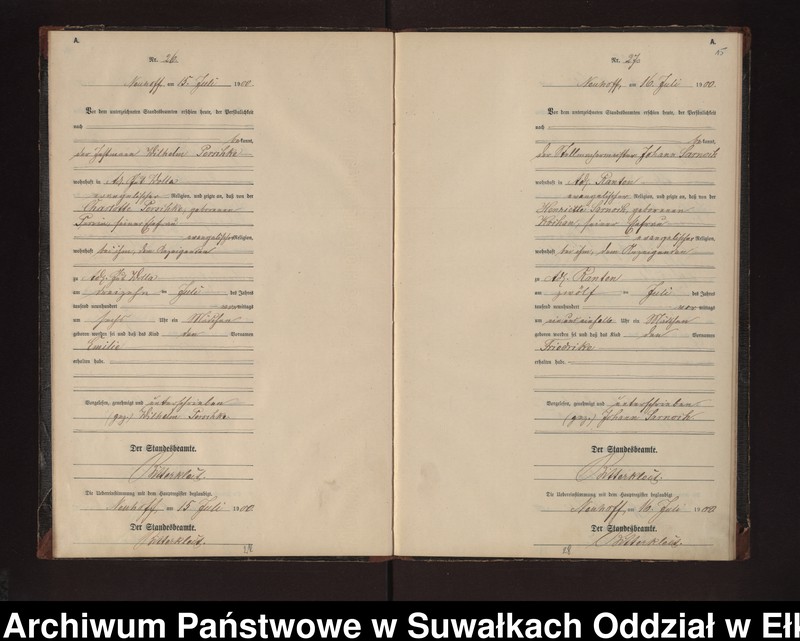 A.
Nr. 26.
Neuhoff am 15. Juli 1900.
Vor dem unterzeichneten Standesbeamten erschien heute, der Persönlichkeit
nach
be kannt,
der Wilhelm
wohnhaft in Adl. Gut Wolla
evangelischer Religion, und zeigte an, daß von der
Charlotte geborenen
seiner Ehefrau
evangelischer Religion,
wohnhaft bei ihm, dem Anzeigenden
zu Adl. Gut Wolla
am dreizehn ten Juli des Jahres
tausend neunhundert vor mittags
um sechs Uhr ein Mädchen
geboren worden sei und daß das Kind den Vornamen
Emilie
erhalten habe.
Vorgelesen, genehmigt und unterschrieben
(gez.) Wilhelm
Der Standesbeamte.
Die Uebereinstimmung mit dem Hauptregister beglaubigt
Neuhoff, am 15. Juli 1900.
Der Standesbeamte.
A.
15
Nr. 27.
Neuhoff, am 16. Juli 1900.
Vor dem unterzeichneten Standesbeamten erschien heute, der Persönlichkeit
nach
be kannt,
der Stellmachermeister Johann
wohnhaft in Adl. Ranten
evangelischer Religion, und zeigte an, daß von der
Henriette geborenen
seiner Ehefrau
evangelischer Religion,
wohnhaft bei ihm, dem Anzeigenden
zu Adl. Ranten
am zwölf ten Juli des Jahres
tausend neunhundert vor mittags
um Uhr ein Mädchen
geboren worden sei und daß das Kind den Vornamen
Friedrike
erhalten habe.
Vorgelesen, genehmigt und unterschrieben
(gez.) Johann
Der Standesbeamte.
Die Uebereinstimmung mit dem Hauptregister beglaubigt
Neuhoff, am 16. Juli 1900.
Der Standesbeamte.
Archiwum Państwowe w Suwałkach Oddział w Eł